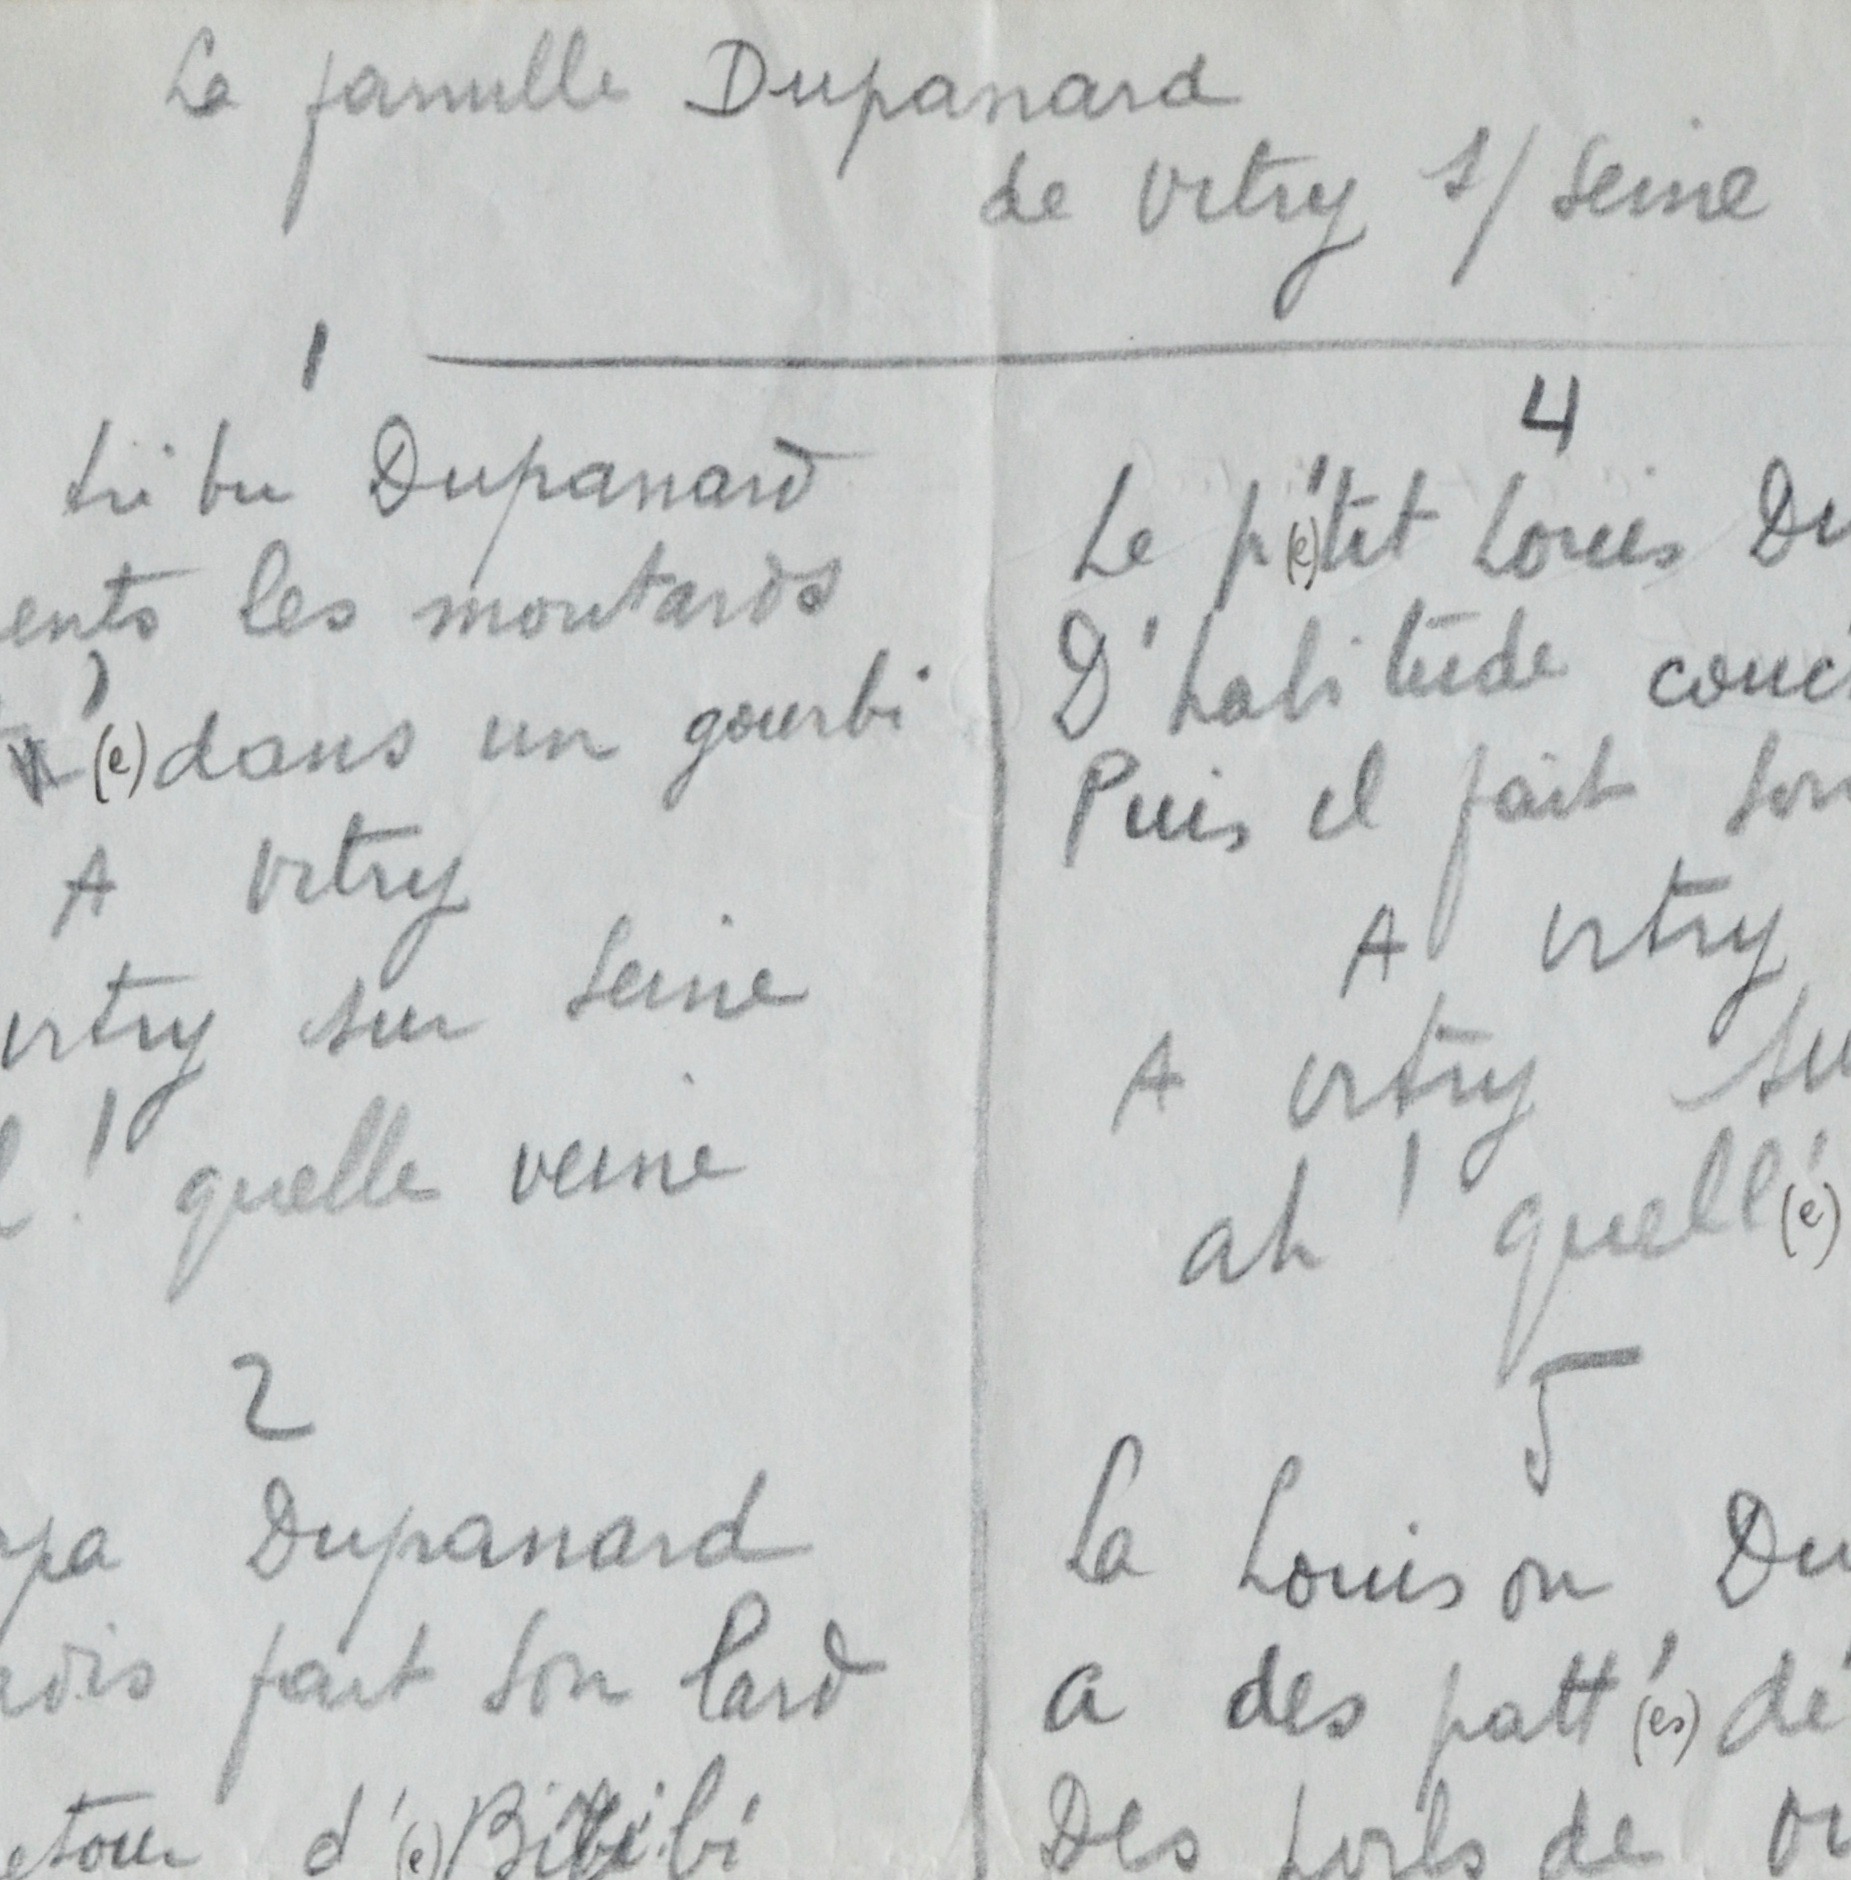 La famille Dupanard
de Vitry s/ Seine
1
tribu Dupanard
ents les moutards
(e) dans un gourbi
A Vitry
Vitry sur Seine
! quelle veine
2
Dupanard
fait son lard
d'(e) Bibi
4
Le p(e)'tit Louis Du
D'habitude couc
Puis il fait son
A Vitry
A Vitry su
ah ! quell'(e)
5
La Louison Du
a des patt'(es) dé
Des poils de